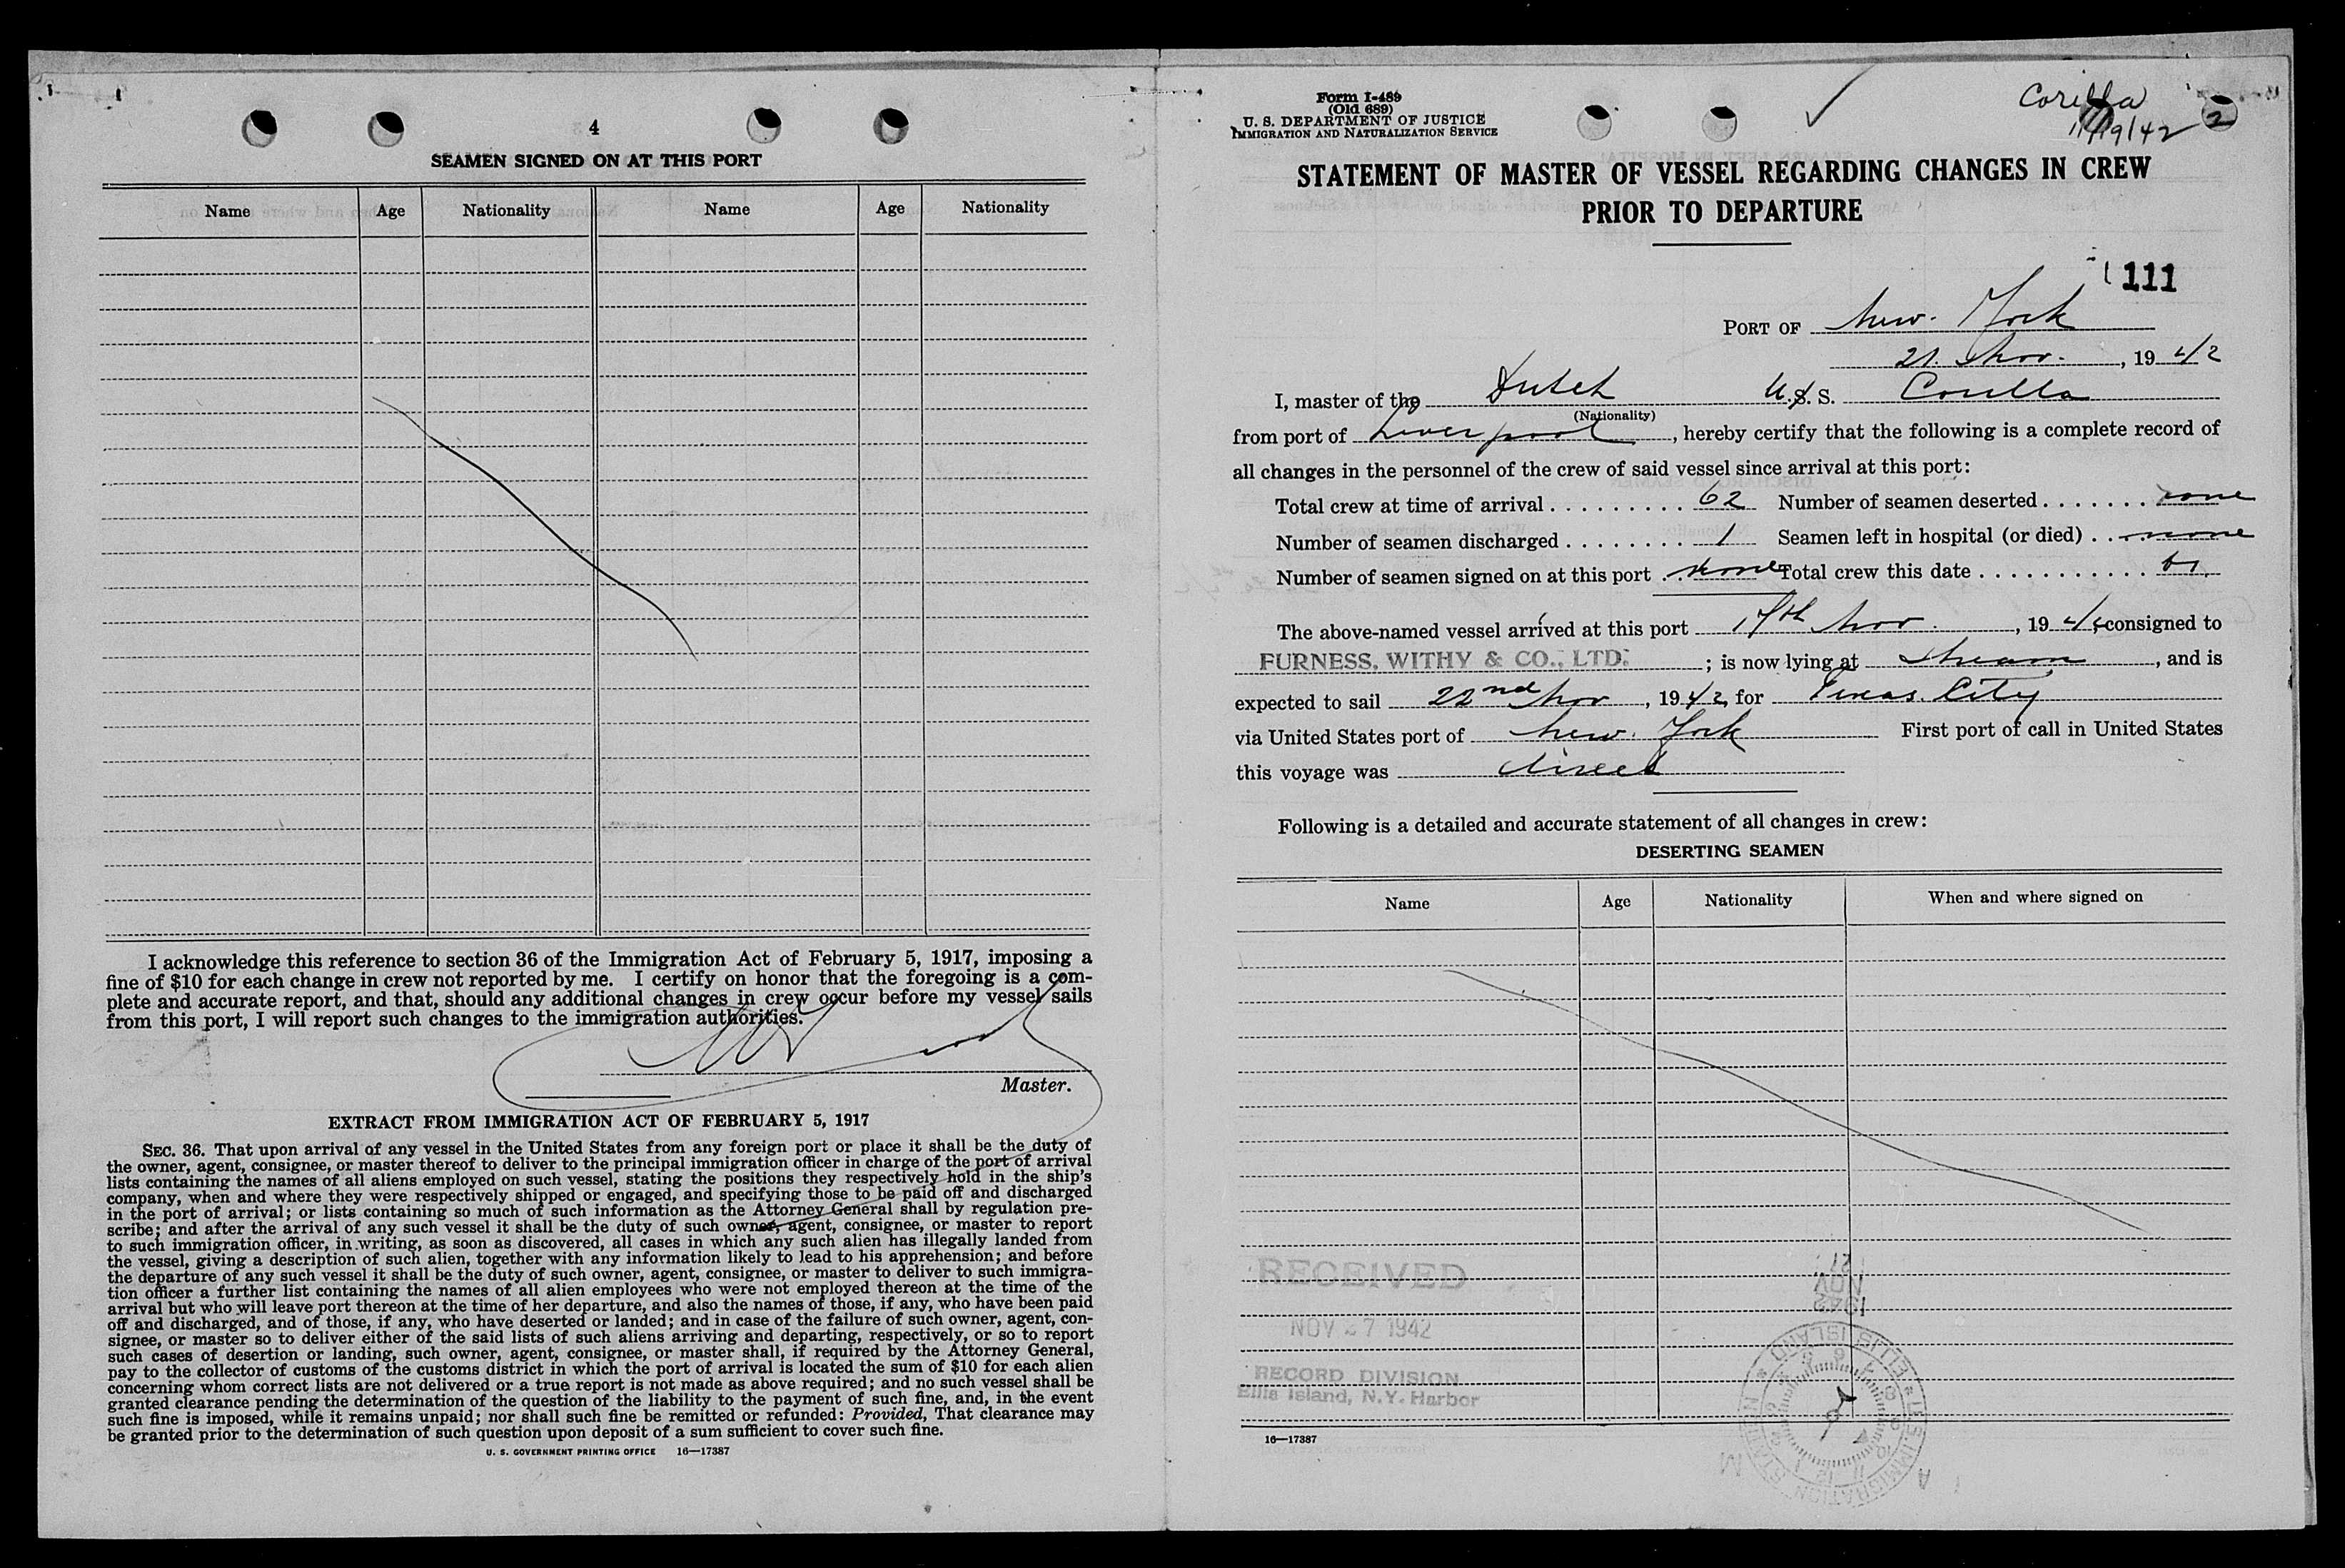 4
SEAMEN SIGNED ON AT THIS PORT
Name Age Nationality Name Age Nationality
I acknowledge this reference to section 36 of the Immigration Act of February 5, 1917, imposing a
fine of $10 for each change in crew not reported by me. I certify on honor that the foregoing is a com-
plete and accurate report, and that, should any additional changes in crew occur before my vessel sails
from this port, I will report such changes to the immigration authorities.
Master.
EXTRACT FROM IMMIGRATION ACT OF FEBRUARY 5, 1917
SEC. 36. That upon arrival of any vessel in the United States from any foreign port or place it shall be the duty of
the owner, agent, consignee, or master thereof to deliver to the principal immigration officer in charge of the port of arrival
lists containing the names of all aliens employed on such vessel, stating the positions they respectively hold in the ship's
company, when and where they were respectively shipped or engaged, and specifying those to be paid off and discharged
in the port of arrival; or lists containing so much of such information as the Attorney General shall by regulation pre-
scribe; and after the arrival of any such vessel it shall be the duty of such owner, agent, consignee, or master to report
to such immigration officer, in writing, as soon as discovered, all cases in which any such alien has illegally landed from
the vessel, giving a description of such alien, together with any information likely to lead to his apprehension; and before
the departure of any such vessel it shall be the duty of such owner, agent, consignee, or master to deliver to such immigra-
tion officer a further list containing the names of all alien employees who were not employed thereon at the time of the
arrival but who will leave port thereon at the time of her departure, and also the names of those, if any, who have been paid
off and discharged, and of those, if any, who have deserted or landed; and in case of the failure of such owner, agent, con-
signee, or master so to deliver either of the said lists of such aliens arriving and departing, respectively, or so to report
such cases of desertion or landing, such owner, agent, consignee, or master shall, if required by the Attorney General,
pay to the collector of customs of the customs district in which the port of arrival is located the sum of $10 for each alien
concerning whom correct lists are not delivered or a true report is not made as above required; and no such vessel shall be
granted clearance pending the determination of the question of the liability to the payment of such fine, and, in the event
such fine is imposed, while it remains unpaid; nor shall such fine be remitted or refunded: Provided, That clearance may
be granted prior to the determination of such question upon deposit of a sum sufficient to cover such fine.
U. S. GOVERNMENT PRINTING OFFICE 16—17387
Form I-489
(Old 689)
U. S. DEPARTMENT OF JUSTICE
IMMIGRATION AND NATURALIZATION SERVICE
Corilla
11/19/42 2
STATEMENT OF MASTER OF VESSEL REGARDING CHANGES IN CREW
PRIOR TO DEPARTURE
111
PORT OF New York
21. Nov. , 19 42
I, master of the Dutch S. S. Corilla
(Nationality)
from port of Liverpool , hereby certify that the following is a complete record of
all changes in the personnel of the crew of said vessel since arrival at this port:
Total crew at time of arrival 62 Number of seamen deserted none
Number of seamen discharged 1 Seamen left in hospital (or died) none
Number of seamen signed on at this port none Total crew this date 61
The above-named vessel arrived at this port Nov. , 19 42 consigned to
FURNESS, WITHY & CO., LTD. ; is now lying at stream , and is
expected to sail 22nd Nov , 1942, for Texas City
via United States port of New York First port of call in United States
this voyage was direct
Following is a detailed and accurate statement of all changes in crew:
DESERTING SEAMEN
Name Age Nationality When and where signed on
RECEIVED
NOV 27 1942
RECORD DIVISION
Ellis Island, N.Y. Harbor
NOV
1942
U.S. IMMIGRATION STATION
ELLIS ISLAND
16—17387